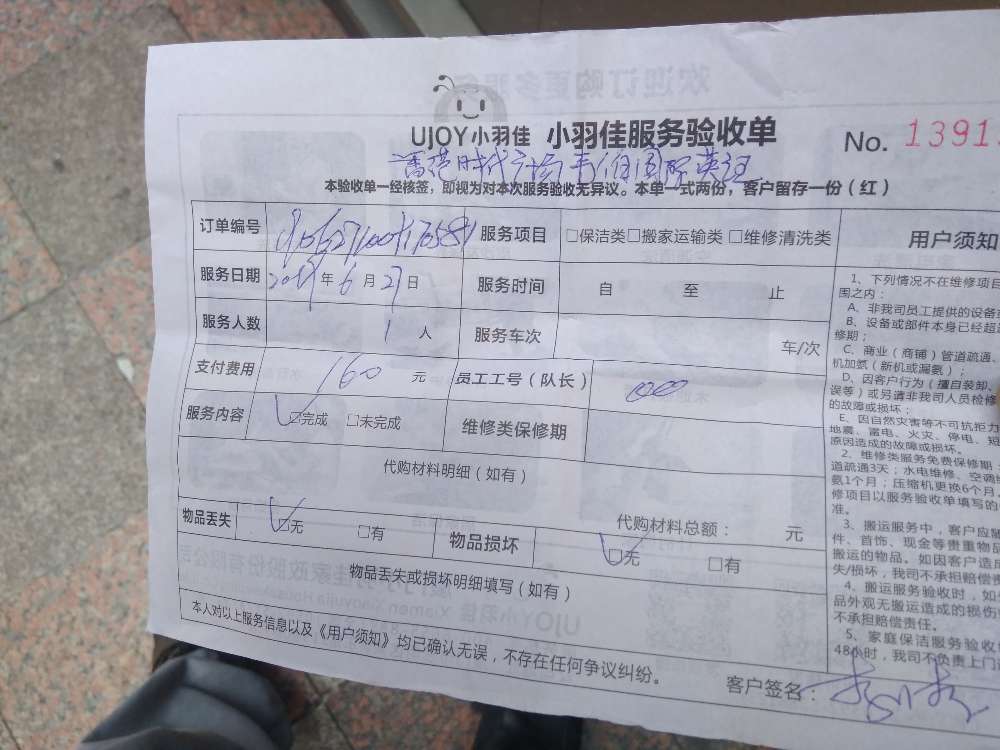 UJOY小羽佳 小羽佳服务验收单 No. 1391
本验收单一经核签，即视为对本次服务验收无异议。本单一式两份，客户留存一份（红）
订单编号 服务项目 □保洁类□搬家运输类 □维修清洗类
服务日期 年 6 月 27 日 服务时间 自 至 止
服务人数 1 人 服务车次 车/次
支付费用 160 元 员工工号（队长） 000
服务内容 ☑完成 □未完成 维修类保修期
代购材料明细（如有）
代购材料总额： 元
物品丢失 ☑无 □有 物品损坏 ☑无 □有
物品丢失或损坏明细填写（如有）
本人对以上服务信息以及《用户须知》均已确认无误，不存在任何争议纠纷。
客户签名：
用户须知
1、下列情况不在维修项目
围之内：
A、非我司员工提供的设备
B、设备或部件本身已经超
修期；
C、商业（商铺）管道疏通、
机加氨（新机或漏氨）；
D、因客户行为（擅自装卸、
误等）或另请非我司人员检修
的故障或损坏；
E、因自然灾害等不可抗拒力
地震、雷电、火灾、停电、短
原因造成的故障或损坏。
2、维修类服务免费保修期：
道疏通3天；水电维修、空调
氨1个月；压缩机更换6个月
修项目以服务验收单填写的
准。
3、搬运服务中，客户应
件、首饰、现金等贵重物品
搬运的物品。如因客户造成
失/损坏，我司不承担赔偿
4、搬运服务验收时，如
品外观无搬运造成的损伤
不承担赔偿责任。
5、家庭保洁服务验收
48小时，我司不负责上门